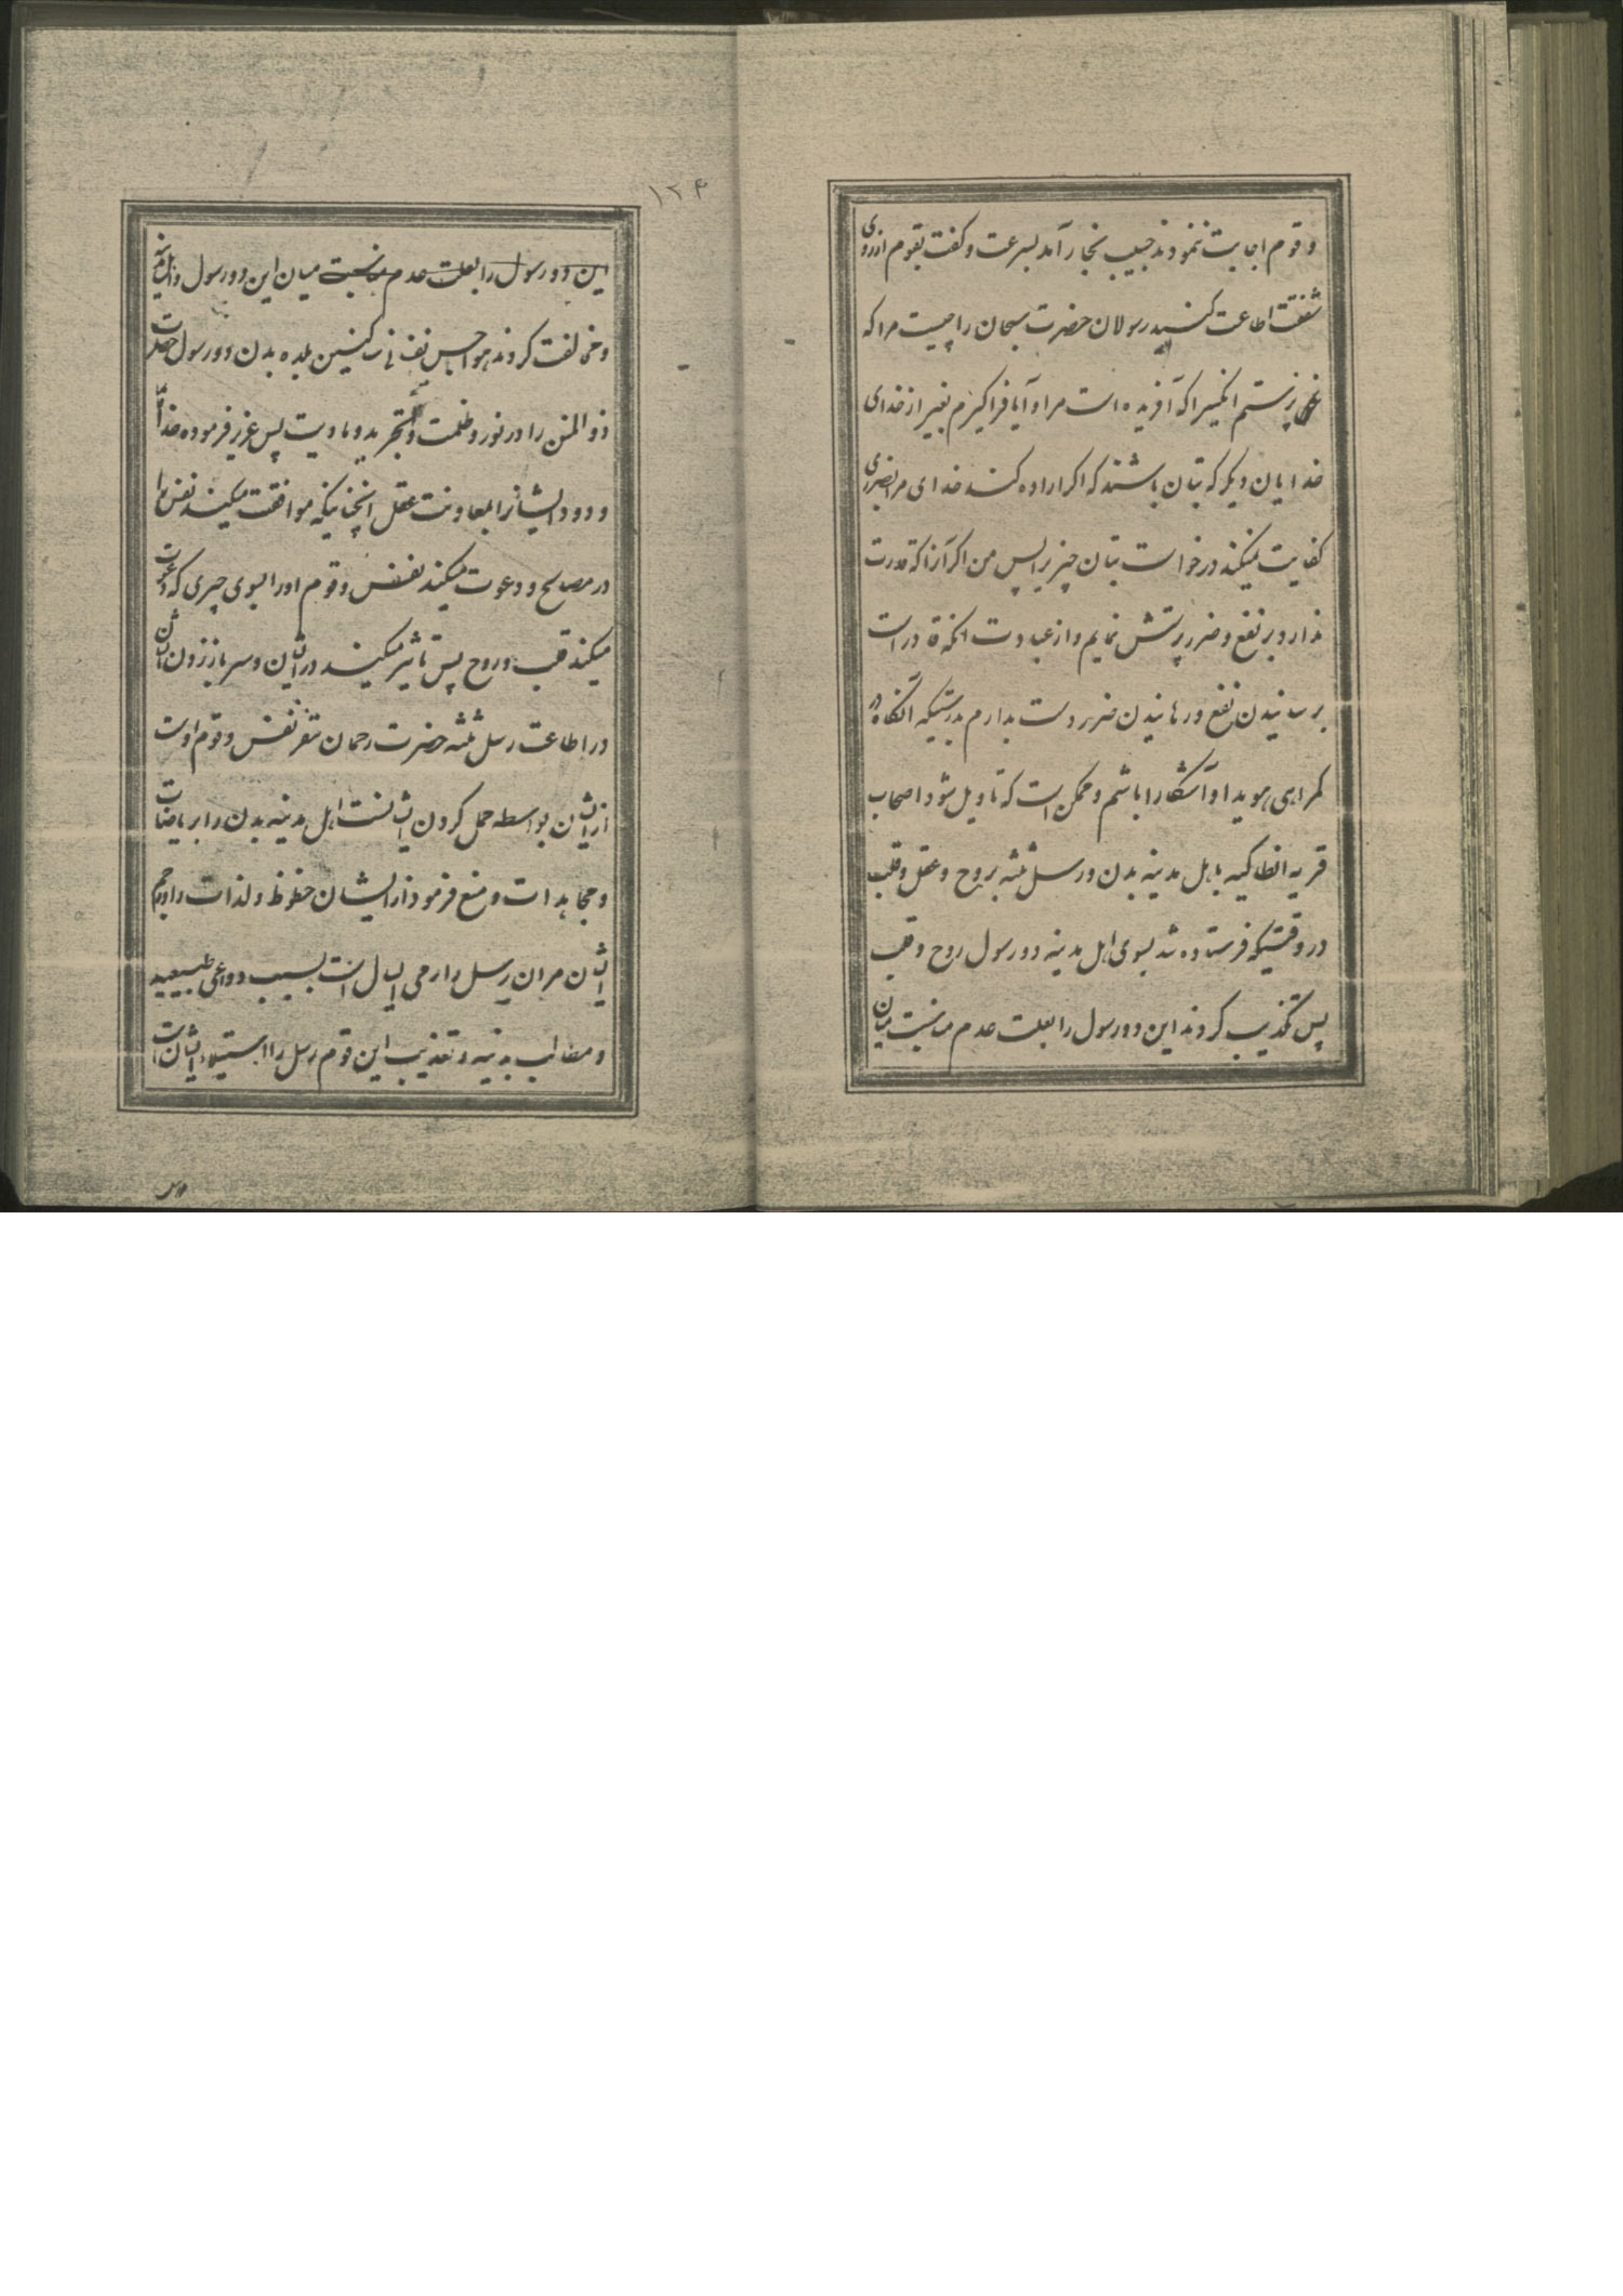 و قوم اجابت ننمودند حبیب نجار آمد بسرعت و کفت بقوم ازروی
شفقت اطاعت کنید رسولان حضرت سبحان را چیست مرا که
نمی پرستم انکسیرا که آفریده است مرا و آیا فراکیرم بغیر از خدای
خدایان دیکر که بتان باشند که اکر اراده کند خدای مرا بضرری
کفایت نمیکند درخواست بتان چیزیرا پس من اکر آنرا که قدرت
ندارد بر نفع و ضرر پرستش نمایم و از عبادت انکه قادر است
برسانیدن نفع و رهانیدن ضرر دست بدارم بدرستیکه آنکاه در
کمراهی هویدا و آشکارا باشم و ممکن است که تاویل شود اصحاب
قریه انطاکیه باهل مدینه بدن و رسل ثلثه بروح و عقل و قلب
در وقتیکه فرستاده شد بسوی اهل مدینه دو رسول روح و قلب
پس تکذیب کردند این دو رسول را بعلت عدم مناسبت میان
۱۲۴
این دو رسول را بعلت عدم مناسبت میان این دو رسول و اهل مدینه
و مخالفت کردند هواجس نفسانی ساکنین بلده بدن دو رسول حضرت
ذوالمنن را در نور و ظلمت و تجرید و مادیت پس عزیز فرموده خدا
و دود ایشانرا بمعاونت عقل انچنانیکه موافقت میکند نفس را
در مصالح و دعوت میکند نفس و قوم او را بسوی چیزی که دعوت
میکند قلب و روح پس تاثیر میکند در ایشان و سر باز زدن ایشان
در اطاعت رسل ثلثه حضرت رحمان تنفر نفس و قوم اوست
از ایشان بواسطه حمل کردن ایشانست اهل مدینه بدن را بریاضات
و مجاهدات و منع فرمودن ایشان حظوظ و لذات را و رجم
ایشان مران رسل را رمی ایشانست بسبب دواعی طبیعیه
و مطالب بدنیه و تعذیب این قوم رسل را استیلاء ایشان است